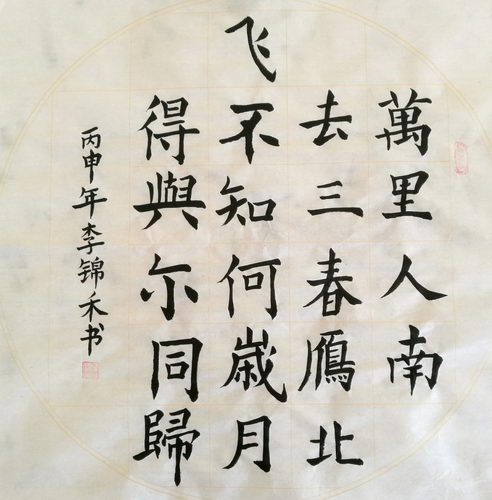 萬里人南
去三春鴈北
飞不知何歳月
得與尓同歸
丙申年李锦禾书